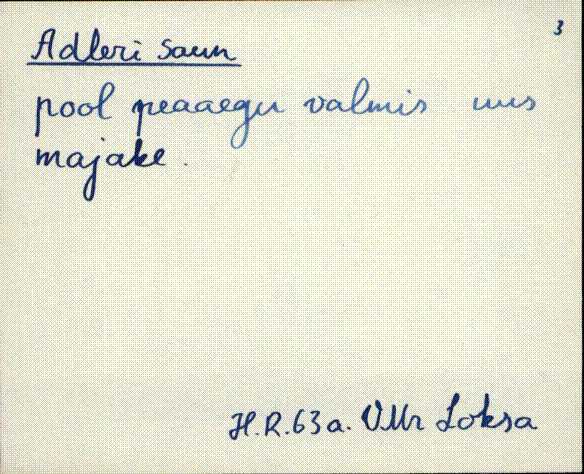 3
Adleri saun
pool peaaegu valmis uus
majake.
H.R.63a. VMr Loksa